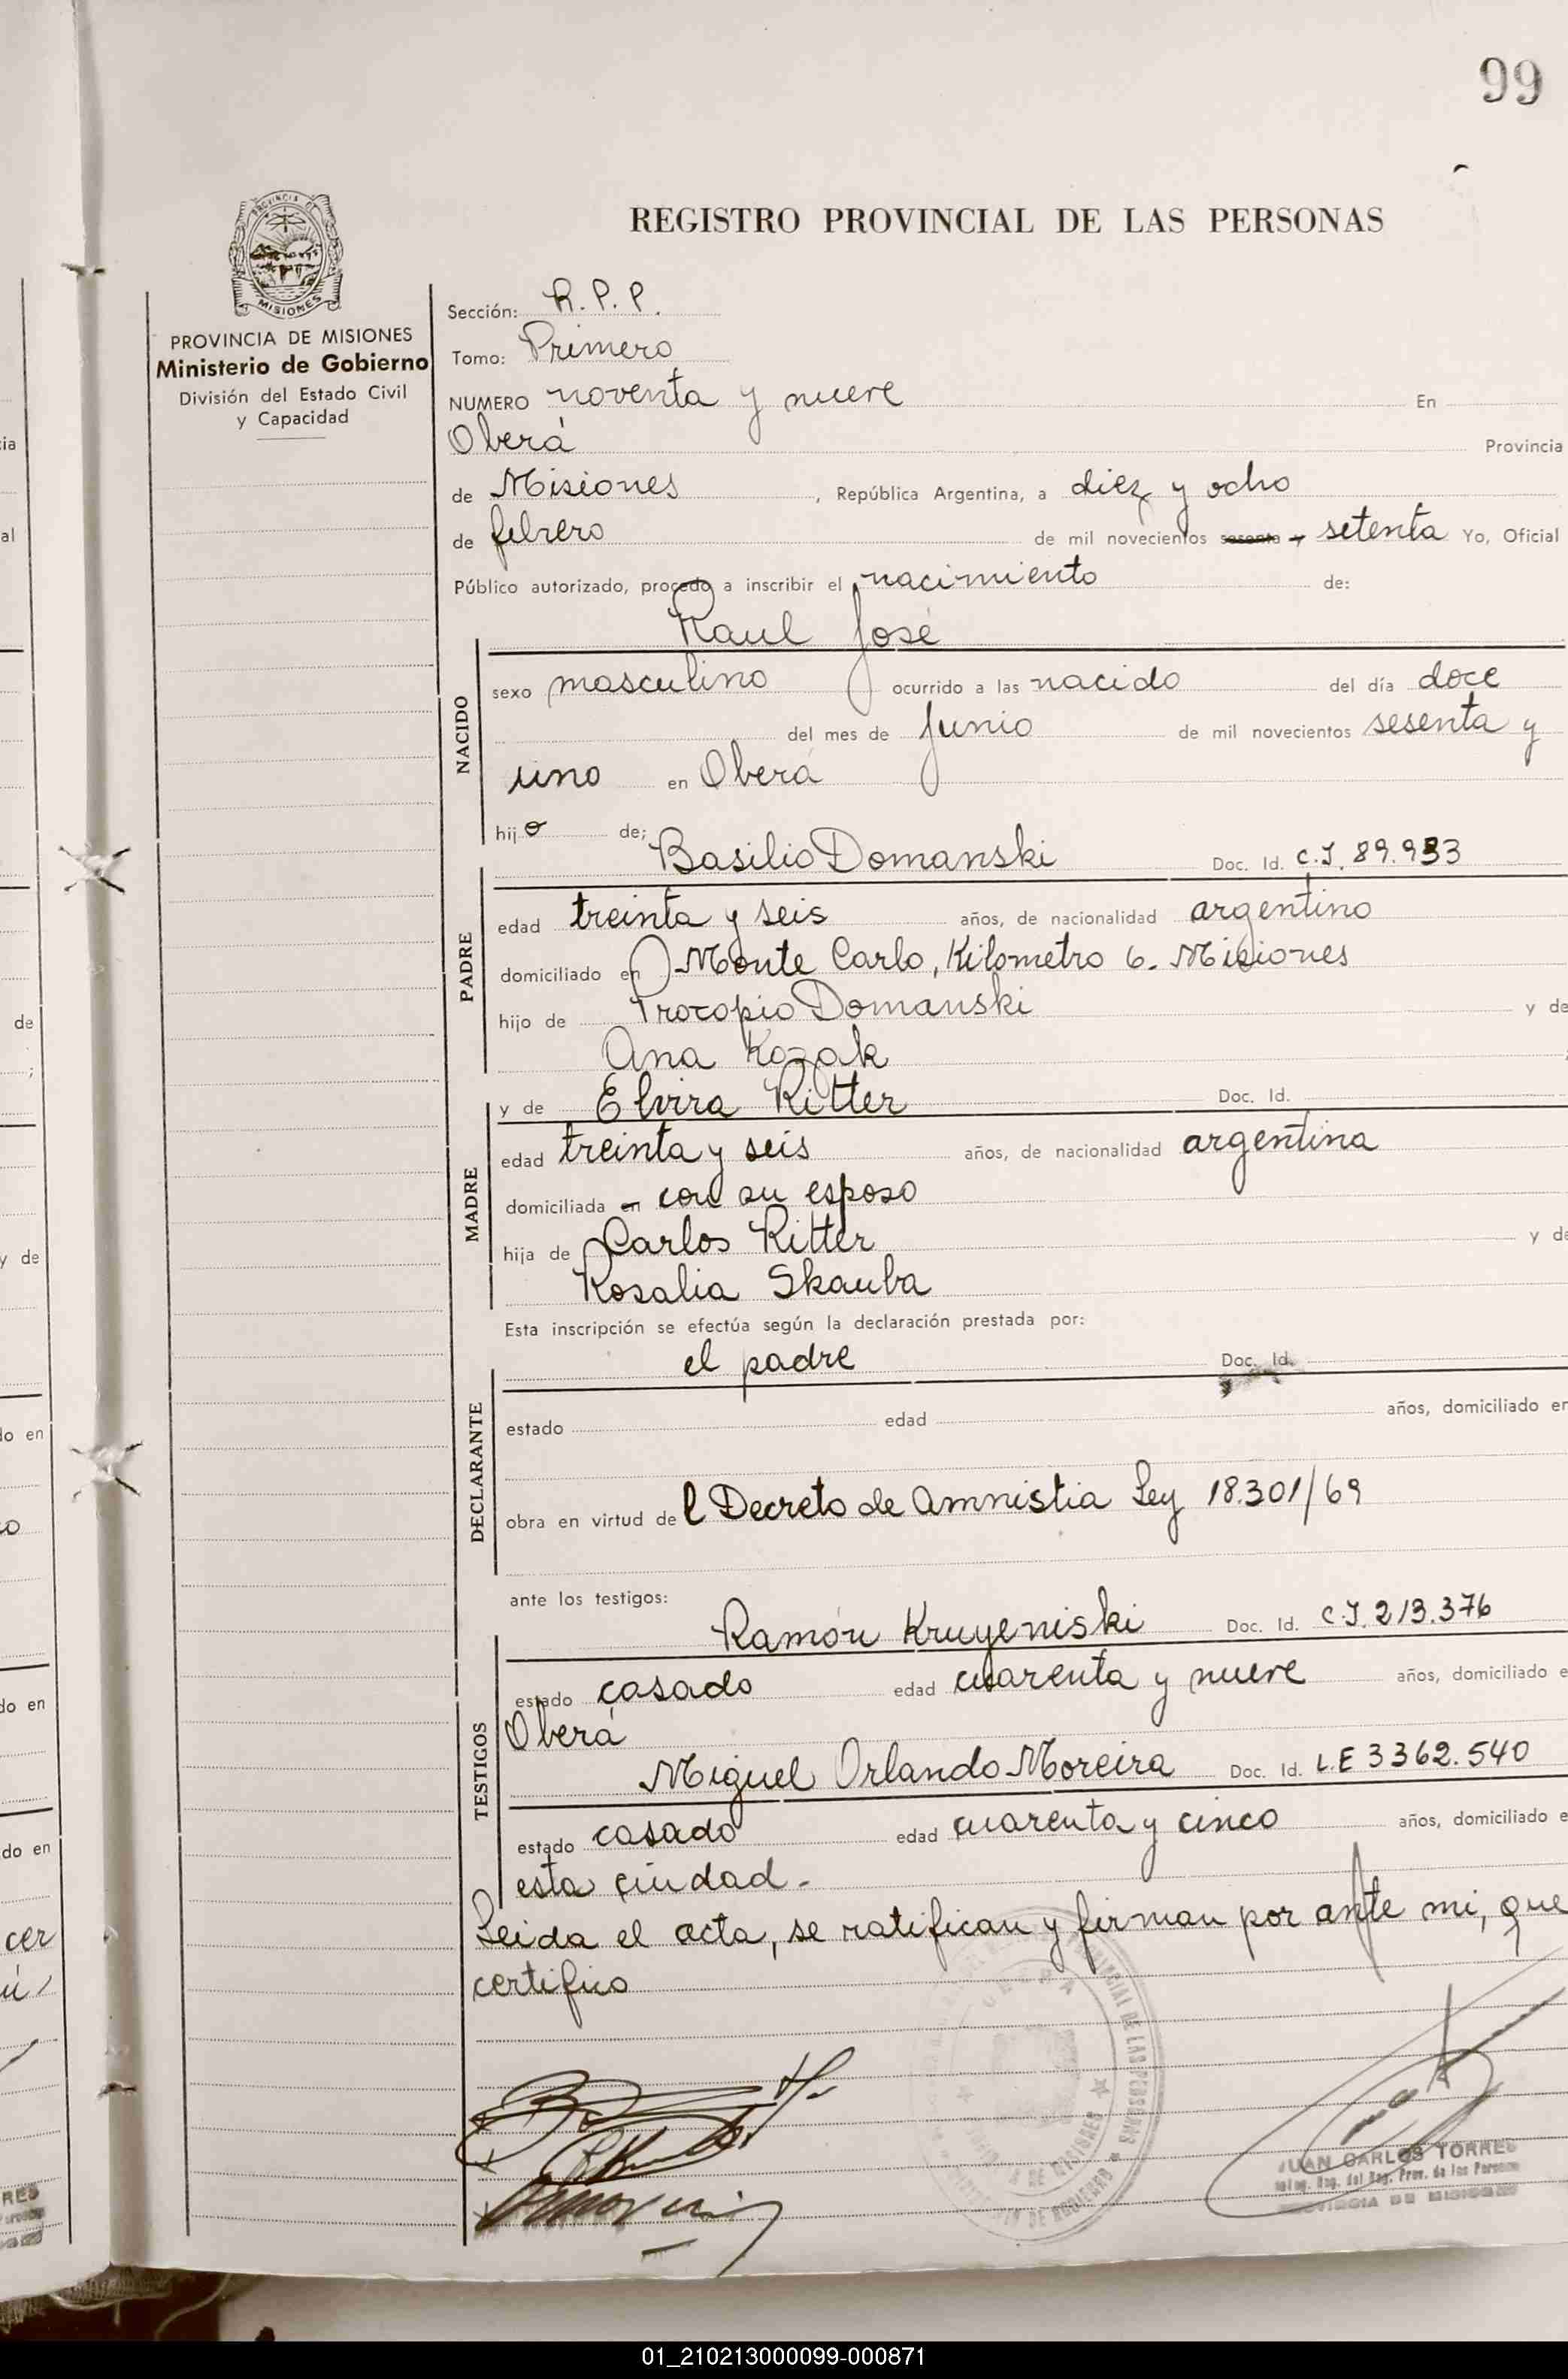 99
REGISTRO PROVINCIAL DE LAS PERSONAS
PROVINCIA DE
MISIONES
PROVINCIA DE MISIONES
Ministerio de Gobierno
División del Estado Civil
y Capacidad
Sección: R.P.P.
Tomo: Primero
NUMERO noventa y nueve En
Oberá Provincia
de Misiones, República Argentina, a diez y ocho
de febrero de mil novecientos sesenta y setenta Yo, Oficial
Público autorizado, procedo a inscribir el nacimiento de:
Raul José
NACIDO
sexo masculino ocurrido a las nacido del día doce
del mes de Junio de mil novecientos sesenta y
uno en Oberá
hijo de;
Basilio Domanski Doc. Id. C.I. 89.933
PADRE
edad treinta y seis años, de nacionalidad argentino
domiciliado en Monte Carlo, Kilometro 6. Misiones
hijo de Procopio Domanski y de
Ana Kozak
y de Elvira Ritter Doc. Id.
MADRE
edad treinta y seis años, de nacionalidad argentina
domiciliada en con su esposo
hija de Carlos Ritter y de
Rosalia Skauba
Esta inscripción se efectúa según la declaración prestada por:
el padre Doc. Id.
DECLARANTE
estado edad años, domiciliado en
obra en virtud del Decreto de Amnistia Ley 18.301/69
ante los testigos:
Ramón Kruyeniski Doc. Id. C.I. 213.376
TESTIGOS
estado casado edad cuarenta y nueve años, domiciliado e
Oberá
Miguel Orlando Moreira Doc. Id. L.E 3362.540
estado casado edad cuarenta y cinco años, domiciliado e
esta ciudad.
Leida el acta, se ratifican y firman por ante mi, que
certifico
JUAN CARLOS TORRES
del Reg. Prov. de las Personas
PROVINCIA DE MISIONES
01_210213000099-000871